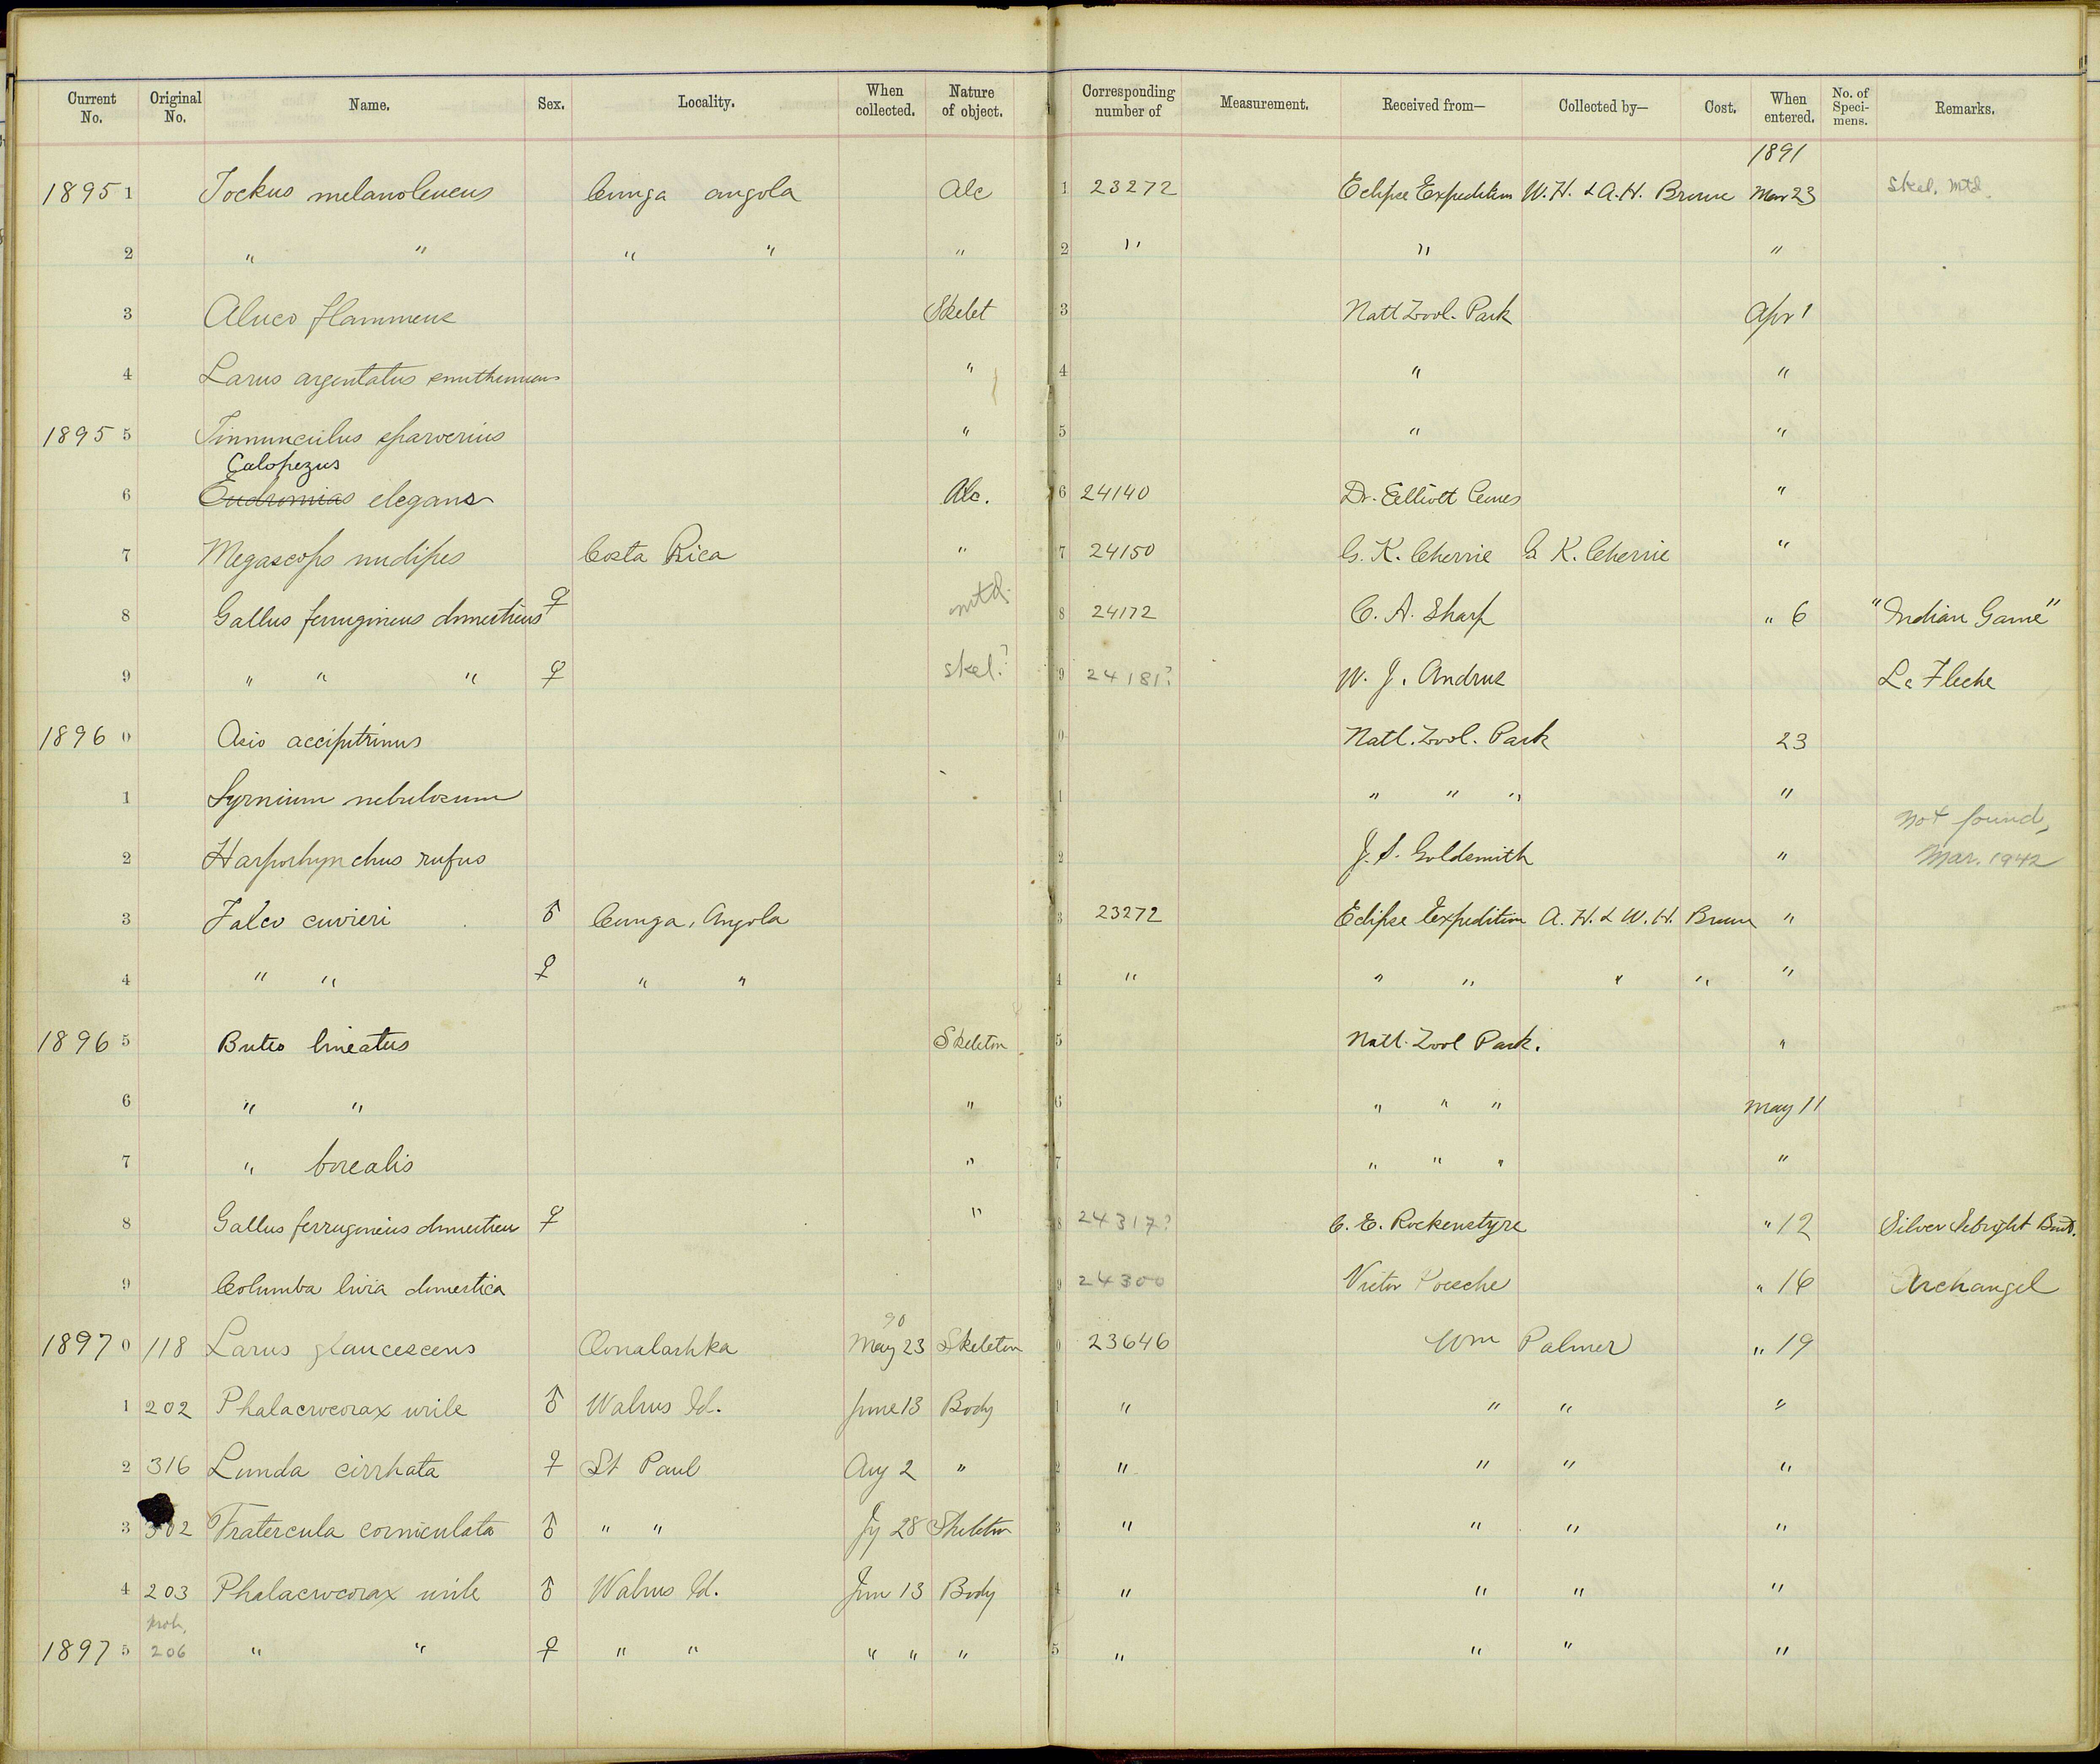 Current No. Original No. Name. Sex. Locality. When collected. Nature of object. Corresponding number of Measurement. Received from— Collected by— Cost. When entered. No. of Speci-mens. Remarks.
1891
1895 1 Tockus melanoleucus Cunga angola Alc 1 23272 Eclipse Expedition W. H. & A. H. Brown Mar 23 Skel. Mtd.
2 " " " " " 2 " " "
3 Aluco flammeus Skelet 3 Natl Zool. Park Apr 1
4 Larus argentatus smithsonians " 4 " "
1895 5 Tinnunculus sparverius " 5 " "
Calopezus
6 Eudromias elegans Alc. 6 24140 Dr. Elliott Coues "
7 Megascops nudipes Costa Rica " 7 24150 G. K. Cherrie G K. Cherrie "
8 Gallus ferrugineus domesticus ♀ mtd. 8 24172 C. A. Sharp " 6 "Indian Game"
9 " " " ♀ skel.? 9 24181? W. J. Andrus La Fleche
1896 0 Asio accipitrinus 0 Natl. Zool. Park 23
1 Syrnium nebulosum 1 " " " "
2 Harporhynchus rufus 2 J. S. Goldsmith " Not found, Mar. 1942
3 Falco cuvieri ♂ Cunga, Angola 3 23272 Eclipse Expedition A. H. & W. H. Brown "
4 " " ♀ " " 4 " " " " " "
1896 5 Buteo lineatus Skeleton 5 Natl. Zool Park. "
6 " " " 6 " " " May 11
7 " borealis " 7 " " " "
8 Gallus ferrugineus domesticus ♀ " 8 24317? C. E. Rockenstyre " 12 Silver Sebright Bant.
9 Columba livia domestica 9 24300 Victor Poesche " 16 Archangel
90
1897 0 118 Larus glaucescens Oonalashka May 23 Skeleton 0 23646 Wm Palmer " 19
1 202 Phalacrocorax urile ♂ Walrus Id. June 13 Body 1 " " " "
2 316 Lunda cirrhata ♀ St Paul Aug 2 " 2 " " " "
3 302 Fratercula corniculata ♂ " " Jy 28 Skeleton 3 " " " "
4 203 Phalacrocorax urile ♂ Walrus Id. Jun 13 Body 4 " " " "
prob.
1897 5 206 " " ♀ " " " " " 5 " " " "